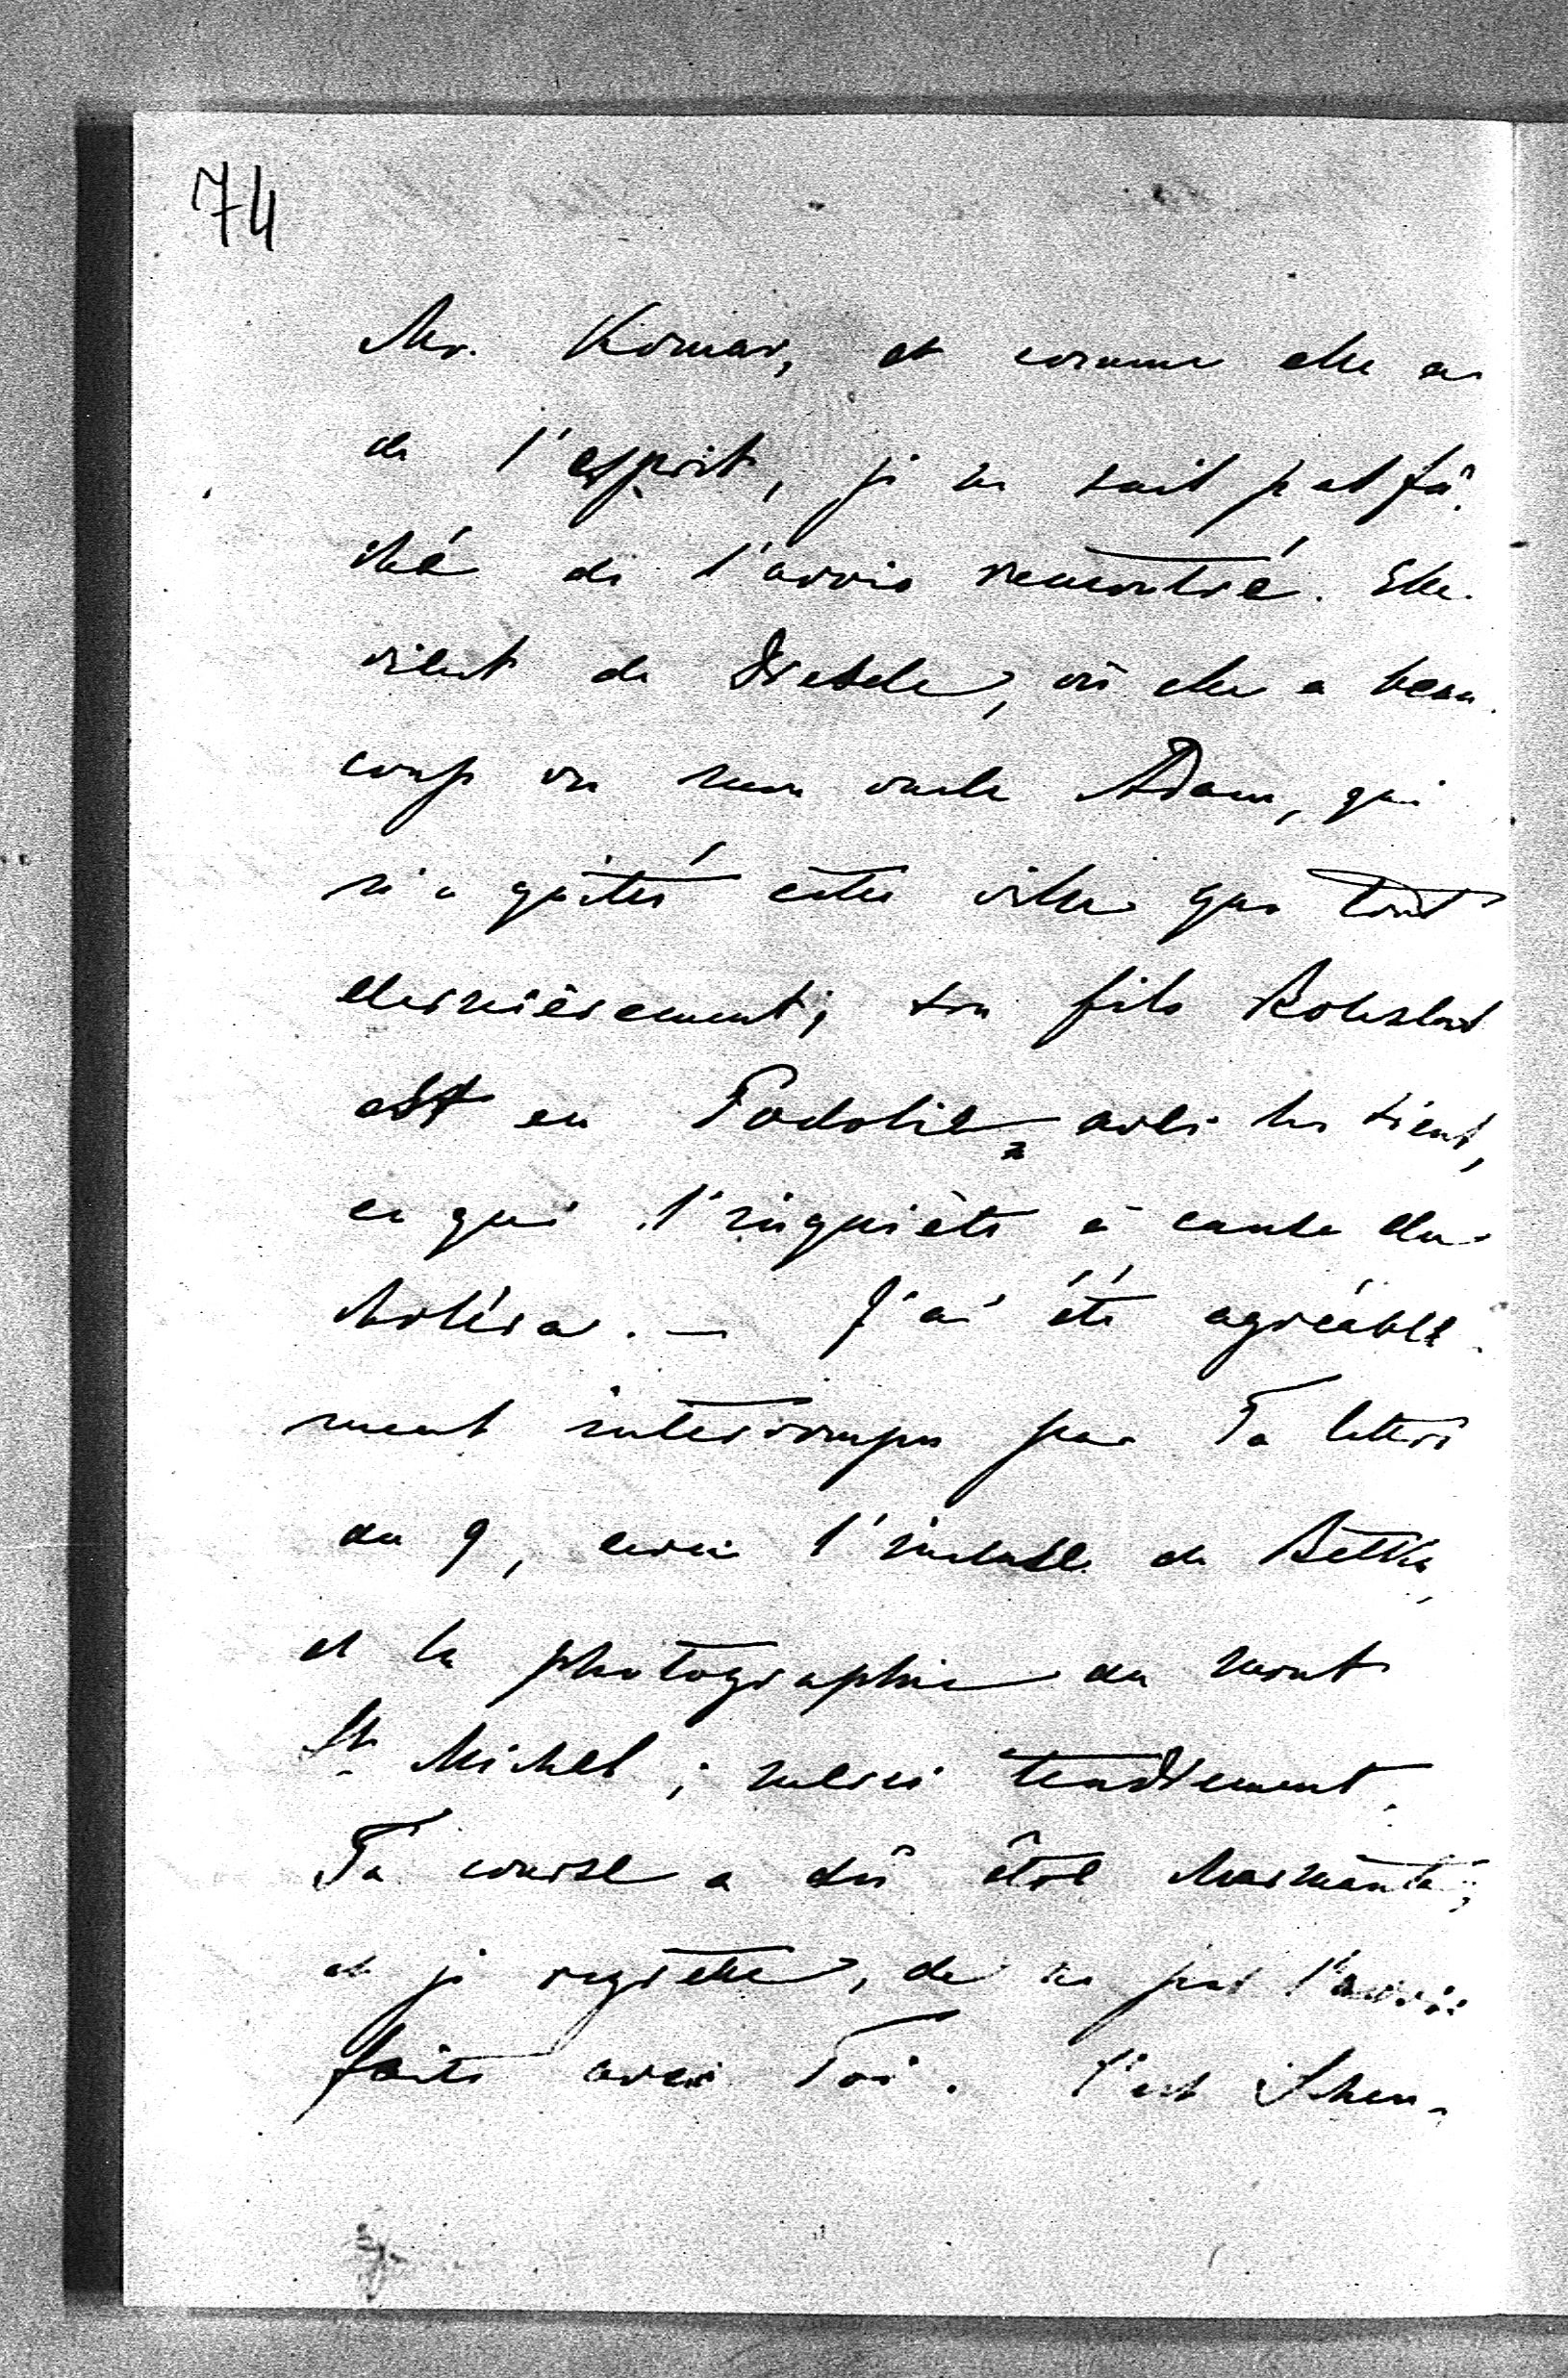 74
Mr. Komar, et comme elle a
de l'esprit, je ne suis pas fâ-
ché de l'avoir rencontré. Elle
vient de Dresde, où elle a beau-
coup vu mon oncle Adam, qui
n'a quitté cette ville que tout
dernièrement; son fils
est en Podolie avec les siens,
ce qui l'inquiète à cause du
choléra. — J'ai été agréable-
ment interrompu par Ta lettre
du 9, avec l'incluse de
et la photographie du mont
St. Michel; merci tendrement.
Ta course a dû être charmante,
et je regrette, de ne pas l'avoir
faite avec Toi. C'est